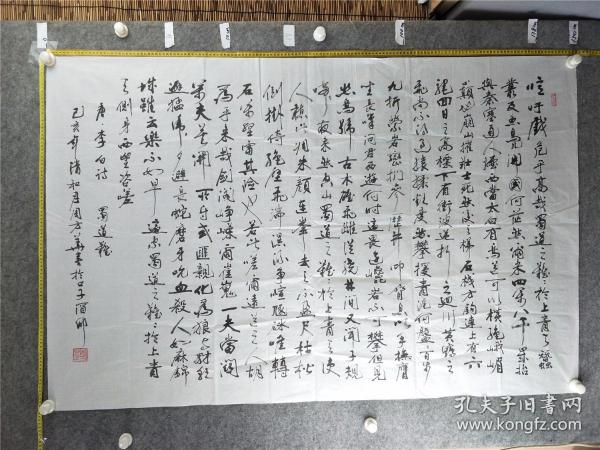 噫吁戲危乎高哉蜀道之難難於上青天蠶
叢及魚鳧開國何茫然爾來四萬八千歲始
與秦塞通人煙西當太白有鳥道可以橫絕峨嵋
巔地崩山摧壯士死然後天梯石棧方鉤連上有六
龍回日之高標下有衝波逆折之回川黃鶴之
飛尚不得過猿猱欲度愁攀援青泥何盤盤百步
九折縈岩巒捫參歷井仰脅息以手撫膺
坐長嘆問君西遊何時還畏途巉岩不可攀但見
悲鳥號古木雄飛雌從繞林間又聞子規
啼夜月愁空山蜀道之難難於上青天使
人聽此凋朱顏連峰去天不盈尺枯松
倒掛倚絕壁飛湍瀑流爭喧豗砯崖轉
石萬壑雷其險也若此嗟爾遠道之人胡
為乎來哉劍閣崢嶸而崔嵬一夫當關
萬夫莫開所守或匪親化為狼與豺朝
避猛虎夕避長蛇磨牙吮血殺人如麻錦
城雖云樂不如早還家蜀道之難難於上青
天側身西望長咨嗟
唐李白詩 蜀道難
孔夫子旧书网
www.kongfz.com